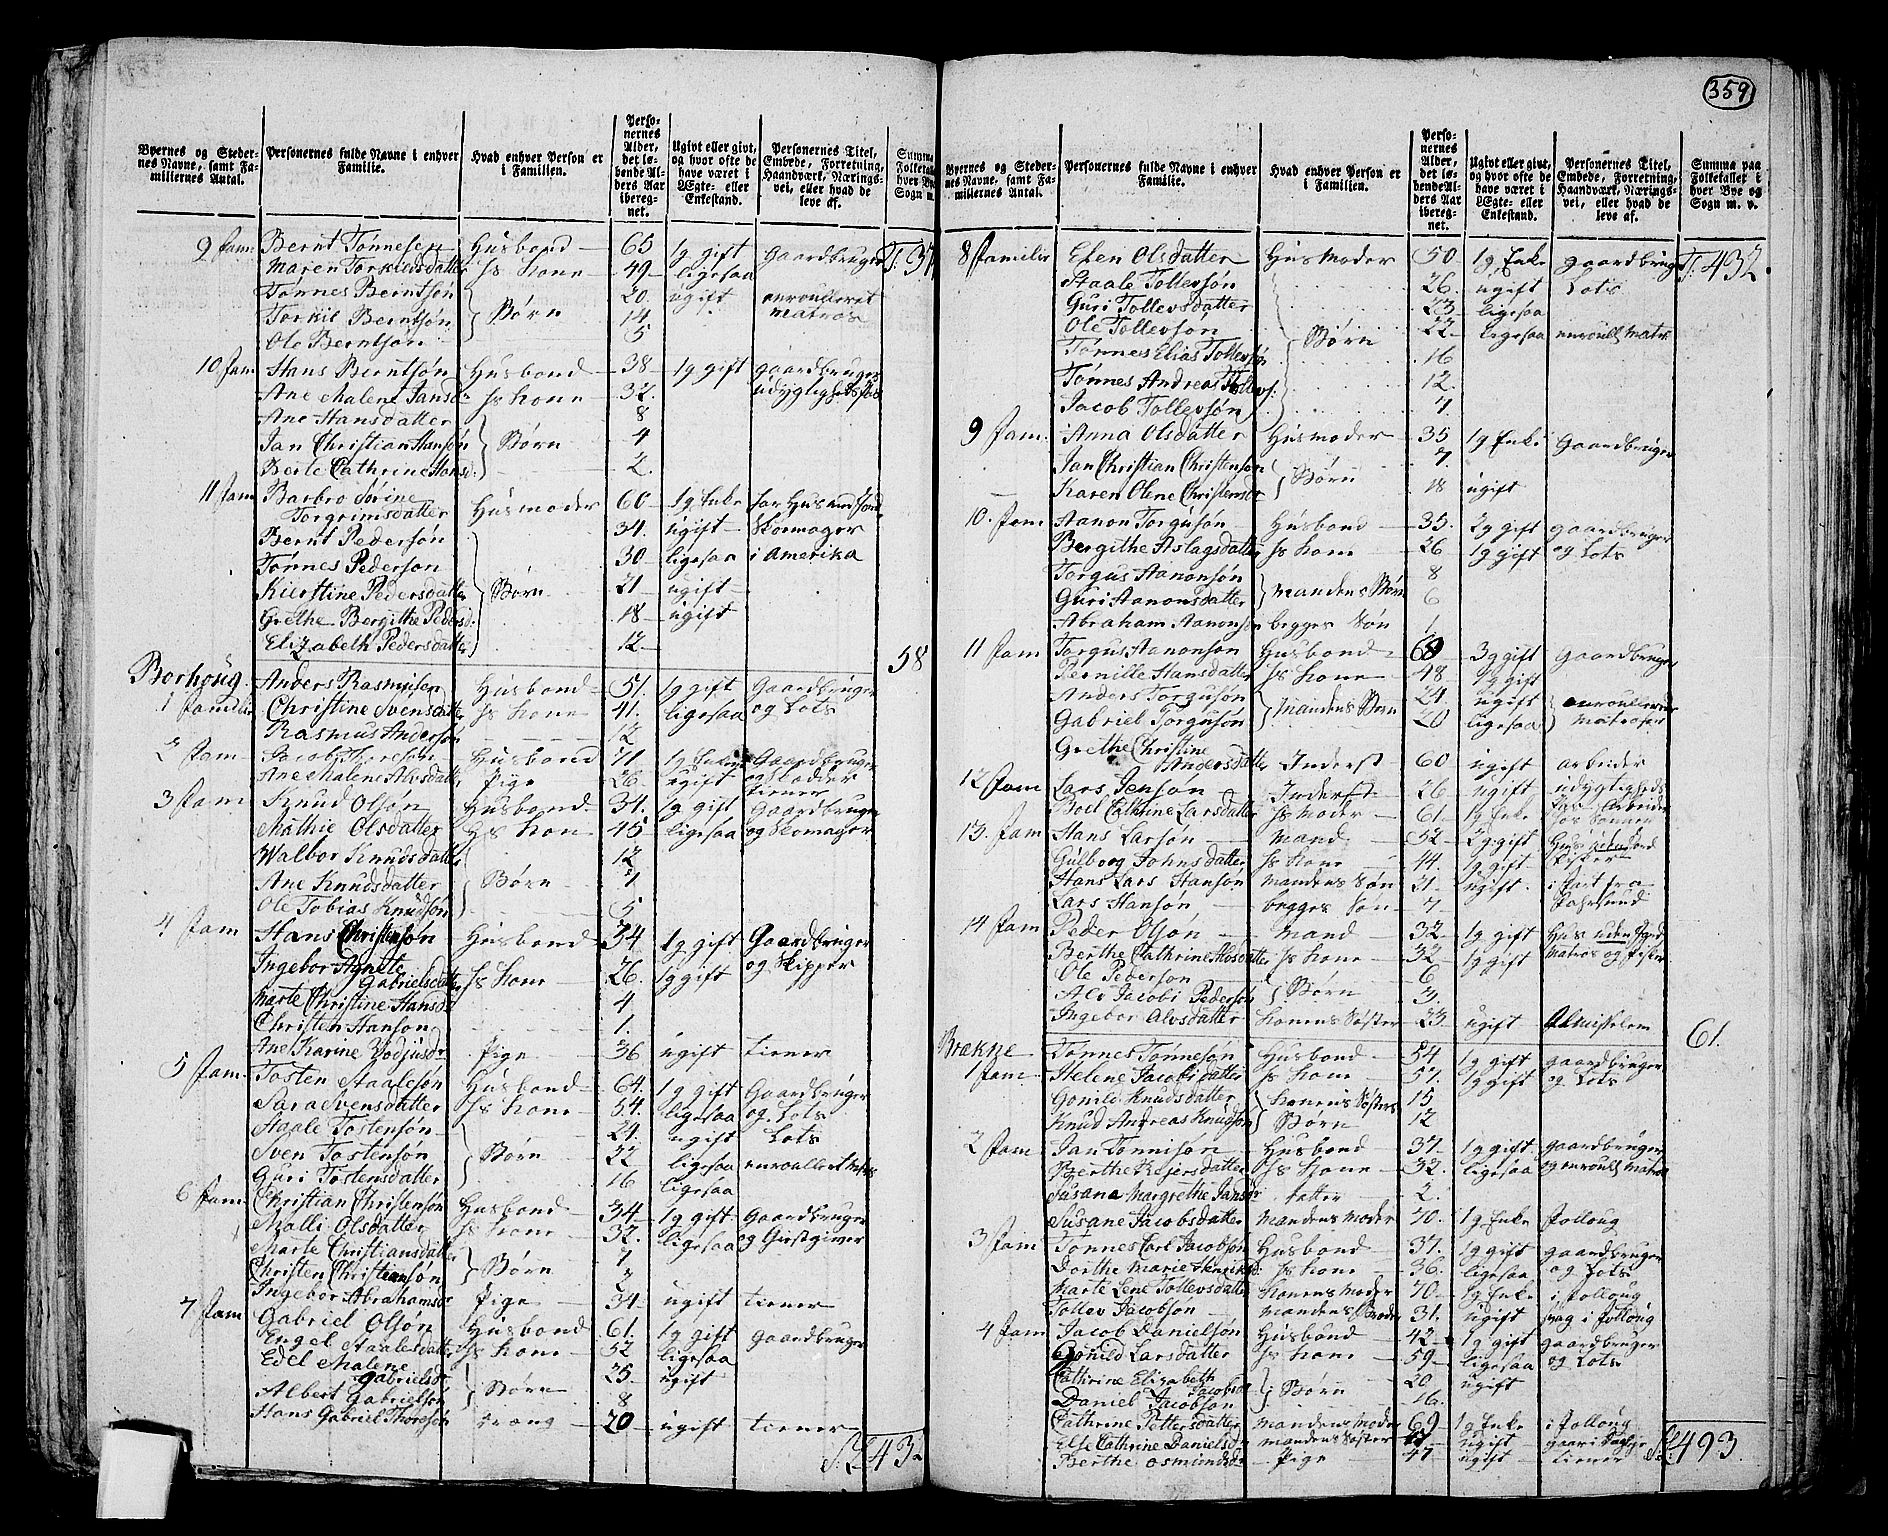 359
Byernes og Stedernes Navne, samt Familiernes Antal. | Personernes fulde Navne i enhver Familie. | Hvad enhver Person er i Familien. | Personernes Alder, det løbende Alders Aar iberegnet. | Ugivt eller givt, og hvor ofte de have været i Ægte- eller Enkestand. | Personernes Titel, Embede, Forretning, Haandværk, Næringsvei, eller hvad de leve af. | Summa
9 Fam. Bernt Tønnesen Husbond 65 1g gift Gaardbruger T. 37
Maren Torkildsdatter hs Kone 49 ligesaa
Tønnes Berntsøn 20. ugift enroulleret
Torkil Berntsøn Børn 14 matros
Ole Berntsøn 5
10 Fam Hans Berntsøn Husbond 38 1g gift gaardbruger
Ane Malene Jansd. hs Kone 32. udygtighedspas
Ane Hansdatter 8
Jan Christian Hansøn Børn 4
Berte Cathrine Hansd. 2.
11 Fam Barbro Sørine
Torgrimsdatter Husmoder 60 1g Enke
Bernt Pedersøn 34. ugift Skomager
Tønnes Pedersøn 30 ligesaa i Amerika
Kierstine Pedersdatter Børn 21 ugift
Grethe Bergithe Pedersd. 18 ugift
Elizabeth Pedersdatter 12 58
Borhoug Anders Rasmusen Husbond 51. 1g gift Gaardbruger
1 Familie Christine Svensdatter hs Kone 41. ligesaa og Lots
Rasmus Andersøn 12
2 Fam Jacob Thoresøn Husbond 71 1g Enkem. Gaardbruger
Ane Malene Alvsdatter Pige 26. ugift tiener
3 Fam Knud Olsøn Husbond 31. 1g gift Gaardbruger
Mathie Olsdatter hs Kone 45 ligesaa og Skomager
Walbor Knudsdatter 12
Ane Knudsdatter Børn 7
Ole Tobias Knudsøn 5
4 Fam Hans Christensøn Husbond 34 1g gift Gaardbruger
Ingebor Agnete
Gabrielsdatter hs Kone 26. 1g gift og Skipper
Marte Christine Hansd. 4
Christen Hansøn 1.
Ane Karine Pige 36 ugift tiener
5 Fam. Tosten Staalesøn Husbond 64. 1g gift Gaardbruger
Sara Svensdatter hs Kone 54. ligesaa og Lots
Staale Tostensøn 24. ugift Lots
Sven Tostensøn Børn 22 ligesaa enroullert Matros
Guri Tostensdatter 16 ligesaa
6 Fam. Christian Christensøn Husbond 34 1g gift Gaardbruger
Malli Olsdatter hs Kone 32. ligesaa og Giestgiver
Marte Christiansdatter 7
Christen Christiansøn Børn
Ingebor Abrahamsdr Pige 34 ugift tiener
7 Fam Gabriel Olsøn Husbond 61. 1g gift gaardbruger
Engel Staalesdatter hs Kone 52 ligesaa
Edel Malene
Gabrielsdr 25 ugift
Albert Gabrielsøn Børn 8
Hans Gabriel Thoresøn 20 ugift tiener
432
Byernes og Stedernes Navne, samt Familiernes Antal. | Personernes fulde Navne i enhver Familie. | Hvad enhver Person er i Familien. | Personernes Alder, det løbende Alders Aar iberegnet. | Ugivt eller givt, og hvor ofte de have været i Ægte- eller Enkestand. | Personernes Titel, Embede, Forretning, Haandværk, Næringsvei, eller hvad de leve af. | Summa paa Folketallet i hver Bye og Sogn m. v.
8 Familie Elen Olsdatter Husmoder 50 1g Enke gaardbruger T. 432.
Staale Tollevsøn 26. ugift Lots
Guri Tollevsdatter 23 ligesaa
Ole Tollevsøn Børn 22 ligesaa enroull Matros
Tønnes Elias Tollevsøn 16
Tønnes Andreas Tollevs. 12.
Jacob Tollevsøn 7
9 Fam. Anna Olsdatter Husmoder 35 1g Enke gaardbruger
Jan Christian Christensøn 7.
Karen Olene Christensdr Børn 18 ugift
10. Fam Aanon Torgusøn Husbond 35. 2g gift gaardbruger
Bergithe Aslagsdatter hs Kone 26 1g gift og Lots
Torgus Aanonsøn 8
Guri Aanonsdatter mandens Børn 6
Abraham Aanonsøn begges Søn 1
11 Fam Torgus Aanonsøn Husbond 68 3g gift gaardbruger
Pernille Hansdatter hs Kone 48 gift
Anders Torgusøn 24. ugift enroullerede
Gabriel Torgusøn mandens Børn 20 ligesaa matroser
Grethe Christine
Andersdatter Inderst 60 ugift arbeider
12 Fam Lars Jensøn Inderst 26 ugift udygtigheds
Boel Cathrine Larsdatter hs moder 61. 1g Enke
13. Fam Hans Larsøn Mand 52 2g gift Huus uden Jord
Gulborg Johnsdatter hs Kone 44. 1g gift Fisker
Hans Lars Hansøn mandens Søn 21 ugift i Fart fra
Lars Hansøn begges Søn 7 Fahrsund
14 Fam Peder Olsøn mand 32 1g gift Huus uden Jord
Berthe Cathrine Alvsdatter hs Kone 32 1g gift matros og Fisker
Ole Pedersøn 6
Alv Jacobi Pedersøn Børn 3.
Ingebor Alvsdatter Konens Søster 23 ugift Almisselem 61.
Brekne Tønnes Tønnesøn Husbond 54 1g gift gaardbruger
1 Fam Helene Jacobi datter hs Kone 51. 1g gift og Lots
Gonild Knudsdatter Konens Søsters 15
Knud Andreas Knudsøn Børn 12
2 Fam Jan Tønnisøn Husbond 37. 1g gift gaardbruger
Berthe Reiersdatter hs Kone 32. ligesaa og enroull matros
Susana Margrethe Jansdr datter 2.
Susane Jacobsdatter mandens Moder 70. 1g Enke Folloug
3 Fam Tønnes Carl Jacobsøn Husbond 37. 1g gift gaardbruger
Dorthe Marie Henriksd. hs Kone 36. ligesaa og Lots
Marte Lene Tollevsdatter Konens Moder 70 1g Enke i Folloug
Tollev Jacobsøn mandens Broder 31. ugift svag i Folloug
4 Fam Jacob Danielsøn Husbond 42 1g gift gaardbruger
Gonild Larsdatter hs Kone 59 ligesaa og Lots
Cathrine Elizabeth
Jacobsd. 20 ugift
Daniel Jacobsøn Børn 16.
Cathrine Pettersdatter mandens Moder 69 1g Enke i Folloug
Else Cathrine Danielsd. mandens Søster ugift
Berthe Osmundsd. Pige 47 ugift tiener 493.